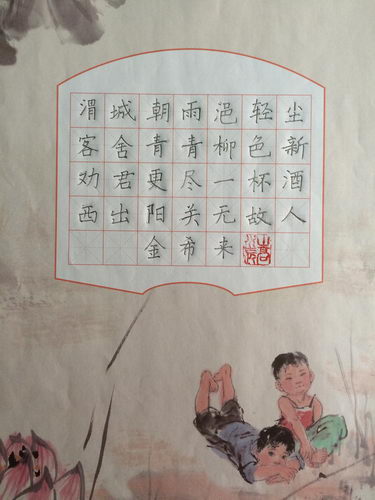 渭城朝雨浥轻尘
客舍青青柳色新
劝君更尽一杯酒
西出阳关无故人
金希来